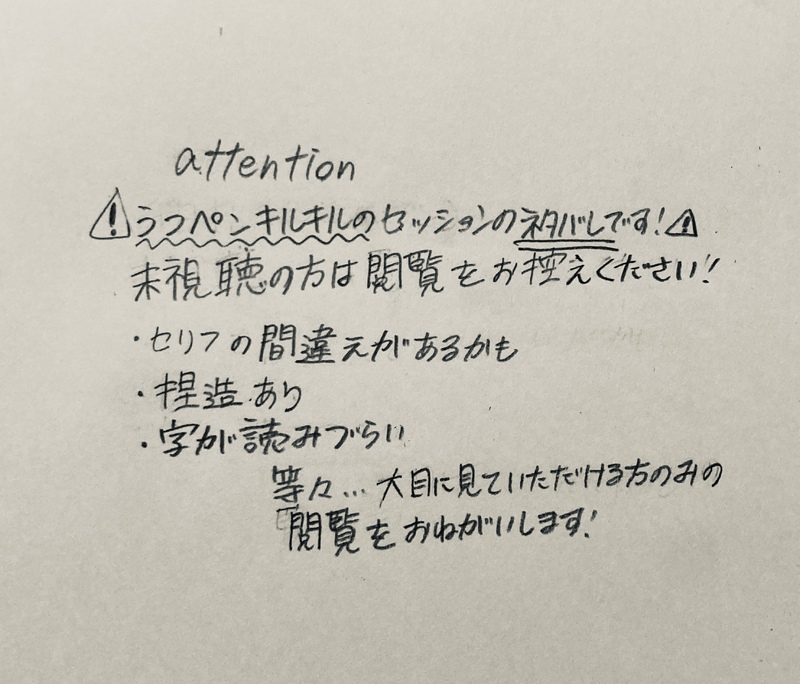 attention
⚠うつペンキルキルのセッションのネタバレです!⚠
未視聴の方は閲覧をお控えください!
・セリフの間違えがあるかも
・捏造あり
・字が読みづらい
等々...大目に見ていただける方のみの
閲覧をおねがいします!